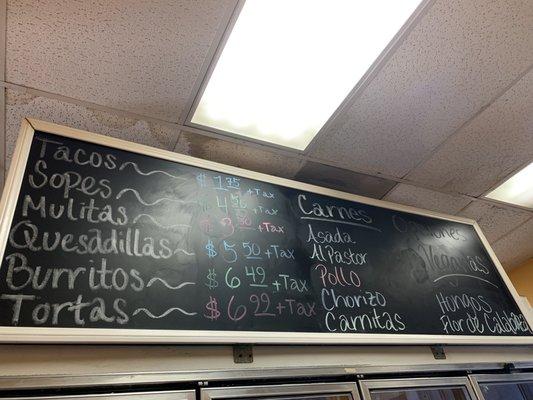 Tacos $1.75 +Tax
Sopes $4.50 +Tax
Mulitas $3.50 +Tax
Quesadillas $5.50 +Tax
Burritos $6.49 +Tax
Tortas $6.99 +Tax
Carnes
Asada
Al Pastor
Pollo
Chorizo
Carnitas
Opciones
Veganas
Hongos
Flor de Calabaza